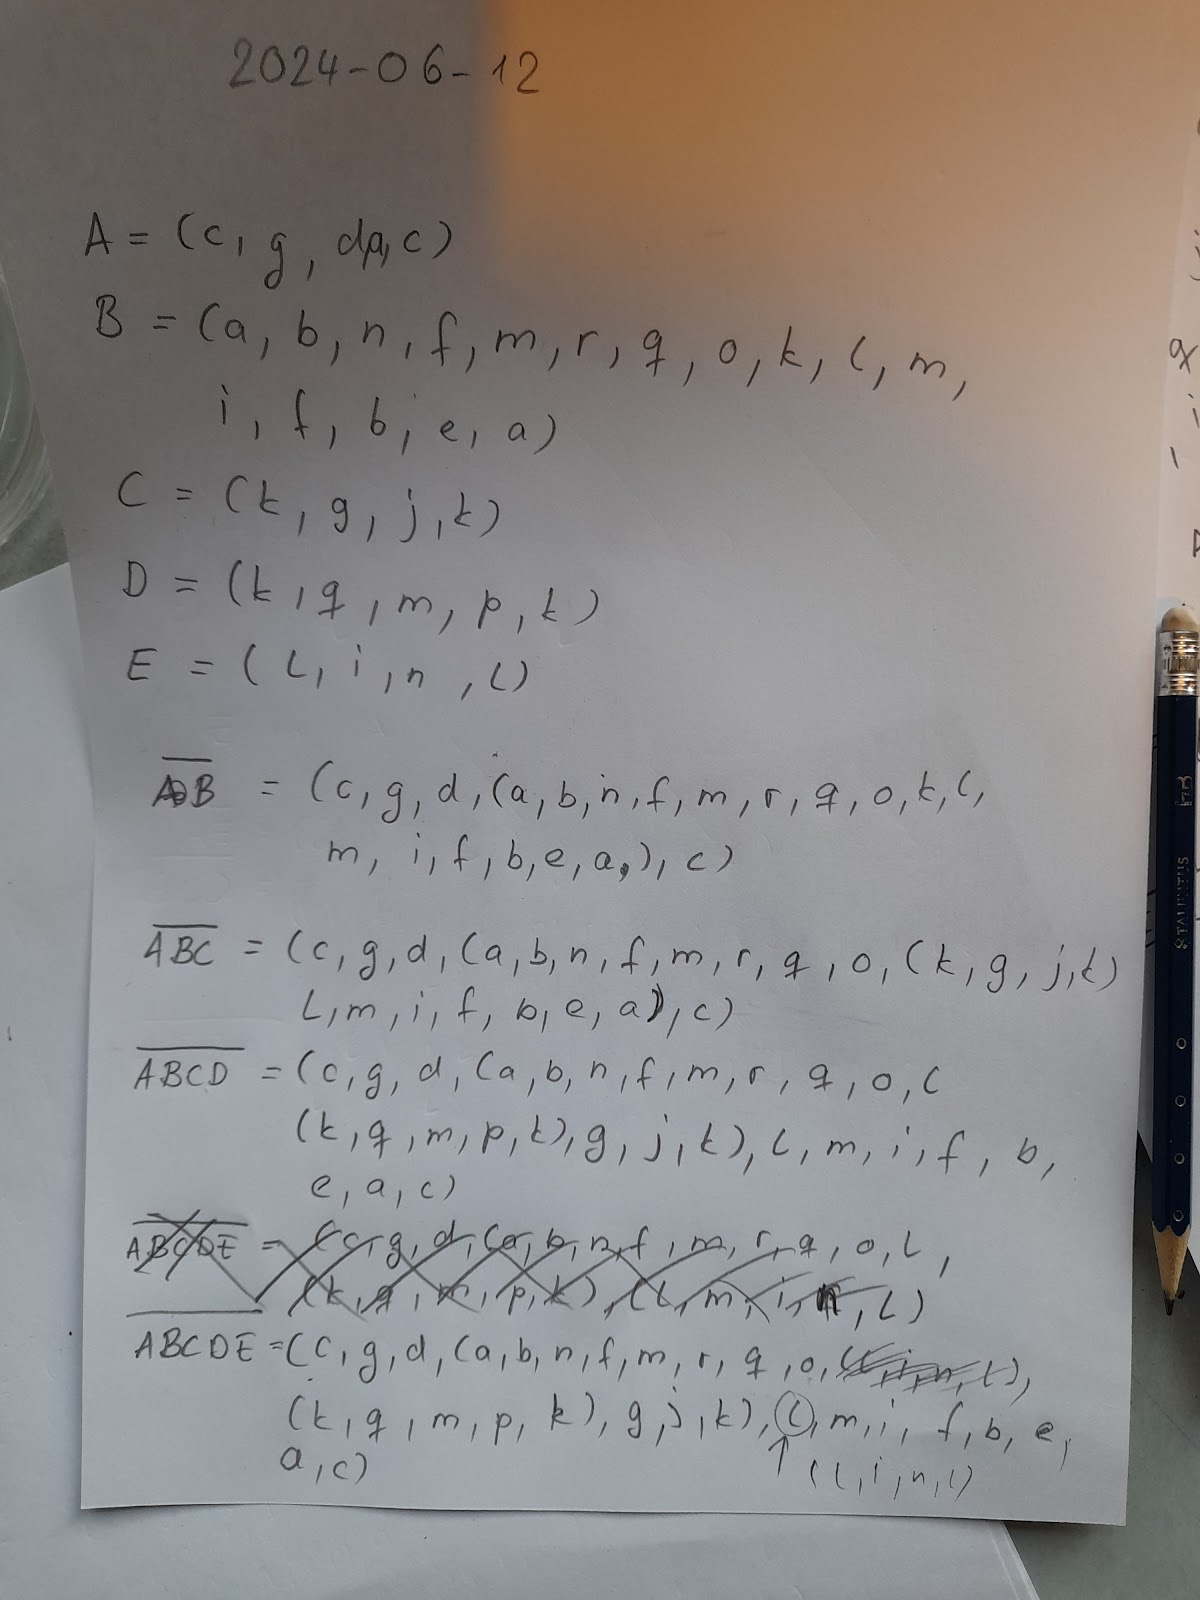 2024-06-12
A = (c, g, d,a,c)
B = (a, b, n, f, m, r, q, o, k, l, m,
i, f, b, e, a)
C = (k, g, j, k)
D = (k, q, m, p, k)
E = (l, i, n, l)
AB = (c, g, d, (a, b, n, f, m, r, q, o, k, l,
m, i, f, b, e, a,), c)
ABC = (c, g, d, (a, b, n, f, m, r, q, o, (k, g, j, k)
l, m, i, f, b, e, a), c)
ABCD = (c, g, d, (a, b, n, f, m, r, q, o, (
(k, q, m, p, k), g, j, k), l, m, i, f, b,
e, a, c)
ABCDE = (c, g, d, (a, b, n, f, m, r, q, o, l,
(k, q, m, p, k), (l, m, i, n, l)
ABCDE = (c, g, d, (a, b, n, f, m, r, q, o, (l, i, n, l),
(k, q, m, p, k), g, j, k), l, m, i, f, b, e,
a, c) ↑ (l, i, n, l)
STAEDTLER